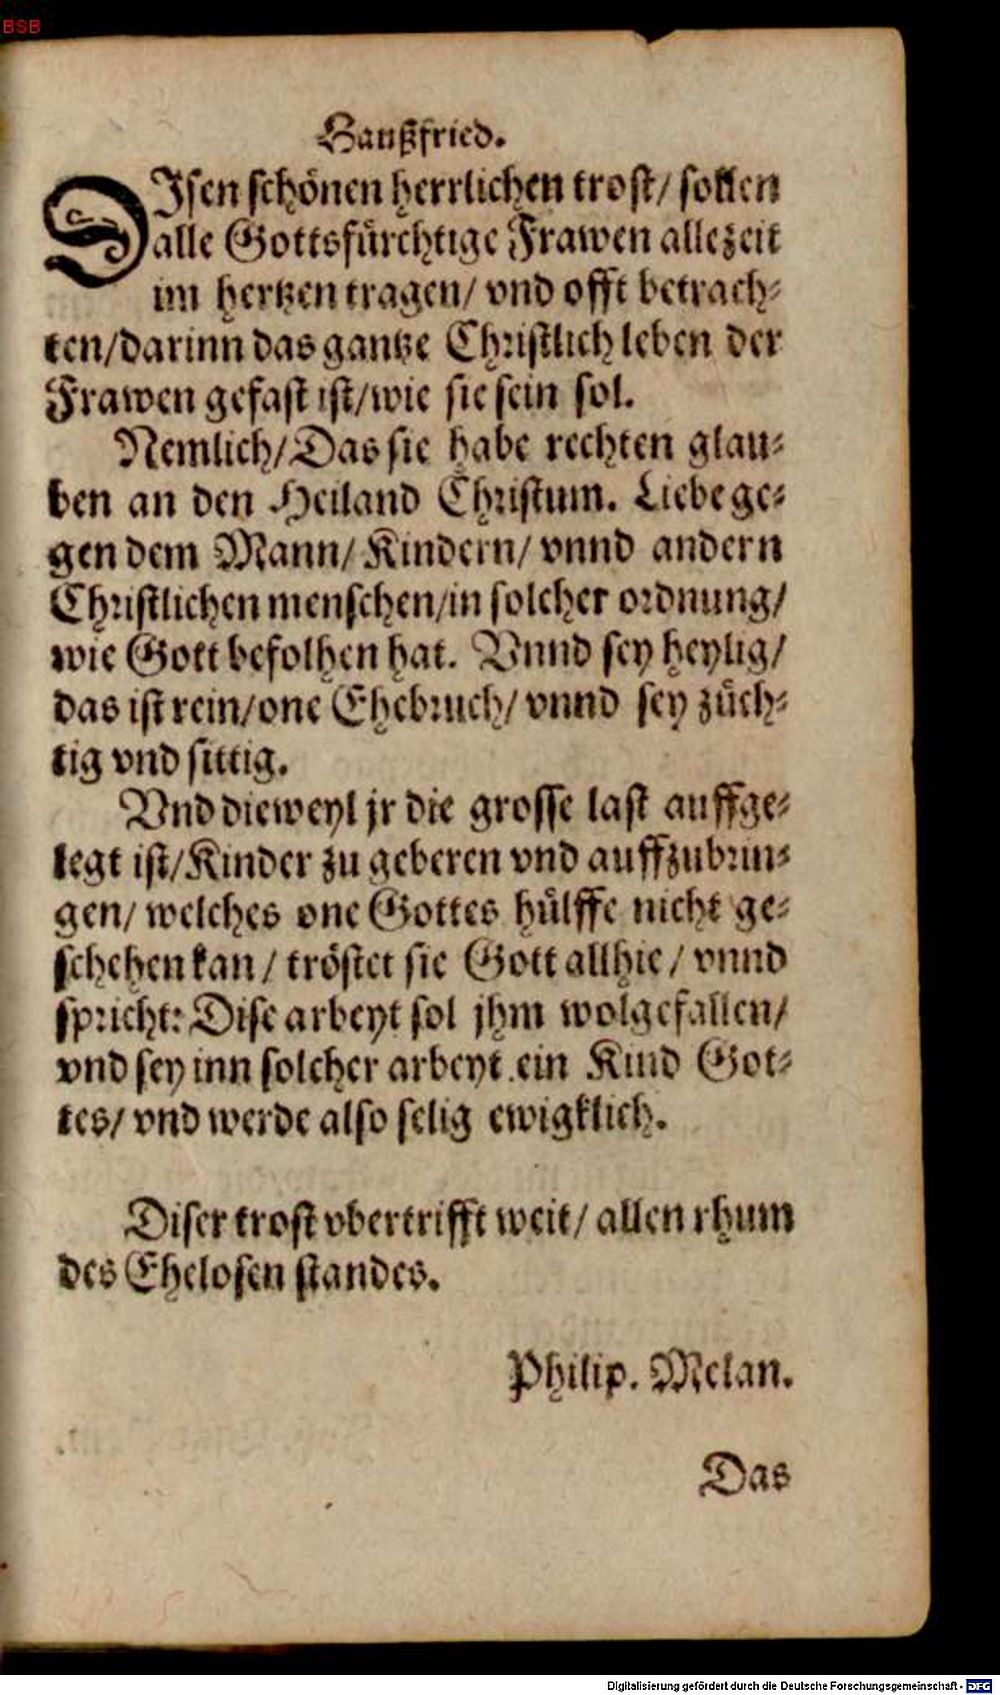 BSB
Haußfried.
DIsen schönen herrlichen trost/ sollen
alle Gottsfürchtige Frawen allezeit
im hertzen tragen/ vnd offt betrach⸗
ten/darinn das gantze Christlich leben der
Frawen gefast ist/wie sie sein sol.
Nemlich/Das sie habe rechten glau⸗
ben an den Heiland Christum. Liebe ge⸗
gen dem Mann/ Kindern/ vnnd andern
Christlichen menschen/in solcher ordnung/
wie Gott befolhen hat. Vnnd sey heylig/
das ist rein/one Ehebruch/ vnnd sey züch⸗
tig vnd sittig.
Vnd dieweyl jr die grosse last auffge⸗
legt ist/Kinder zu geberen vnd auffzubrin⸗
gen/ welches one Gottes hülffe nicht ge⸗
schehen kan/ tröstet sie Gott allhie/ vnnd
spricht: Dise arbeyt sol jhm wolgefallen/
vnd sey inn solcher arbeyt ein Kind Got⸗
tes/ vnd werde also selig ewigklich.
Diser trost vbertrifft weit/ allen rhum
des Ehelosen standes.
Philip. Melan.
Das
Digitalisierung gefördert durch die Deutsche Forschungsgemeinschaft - DFG